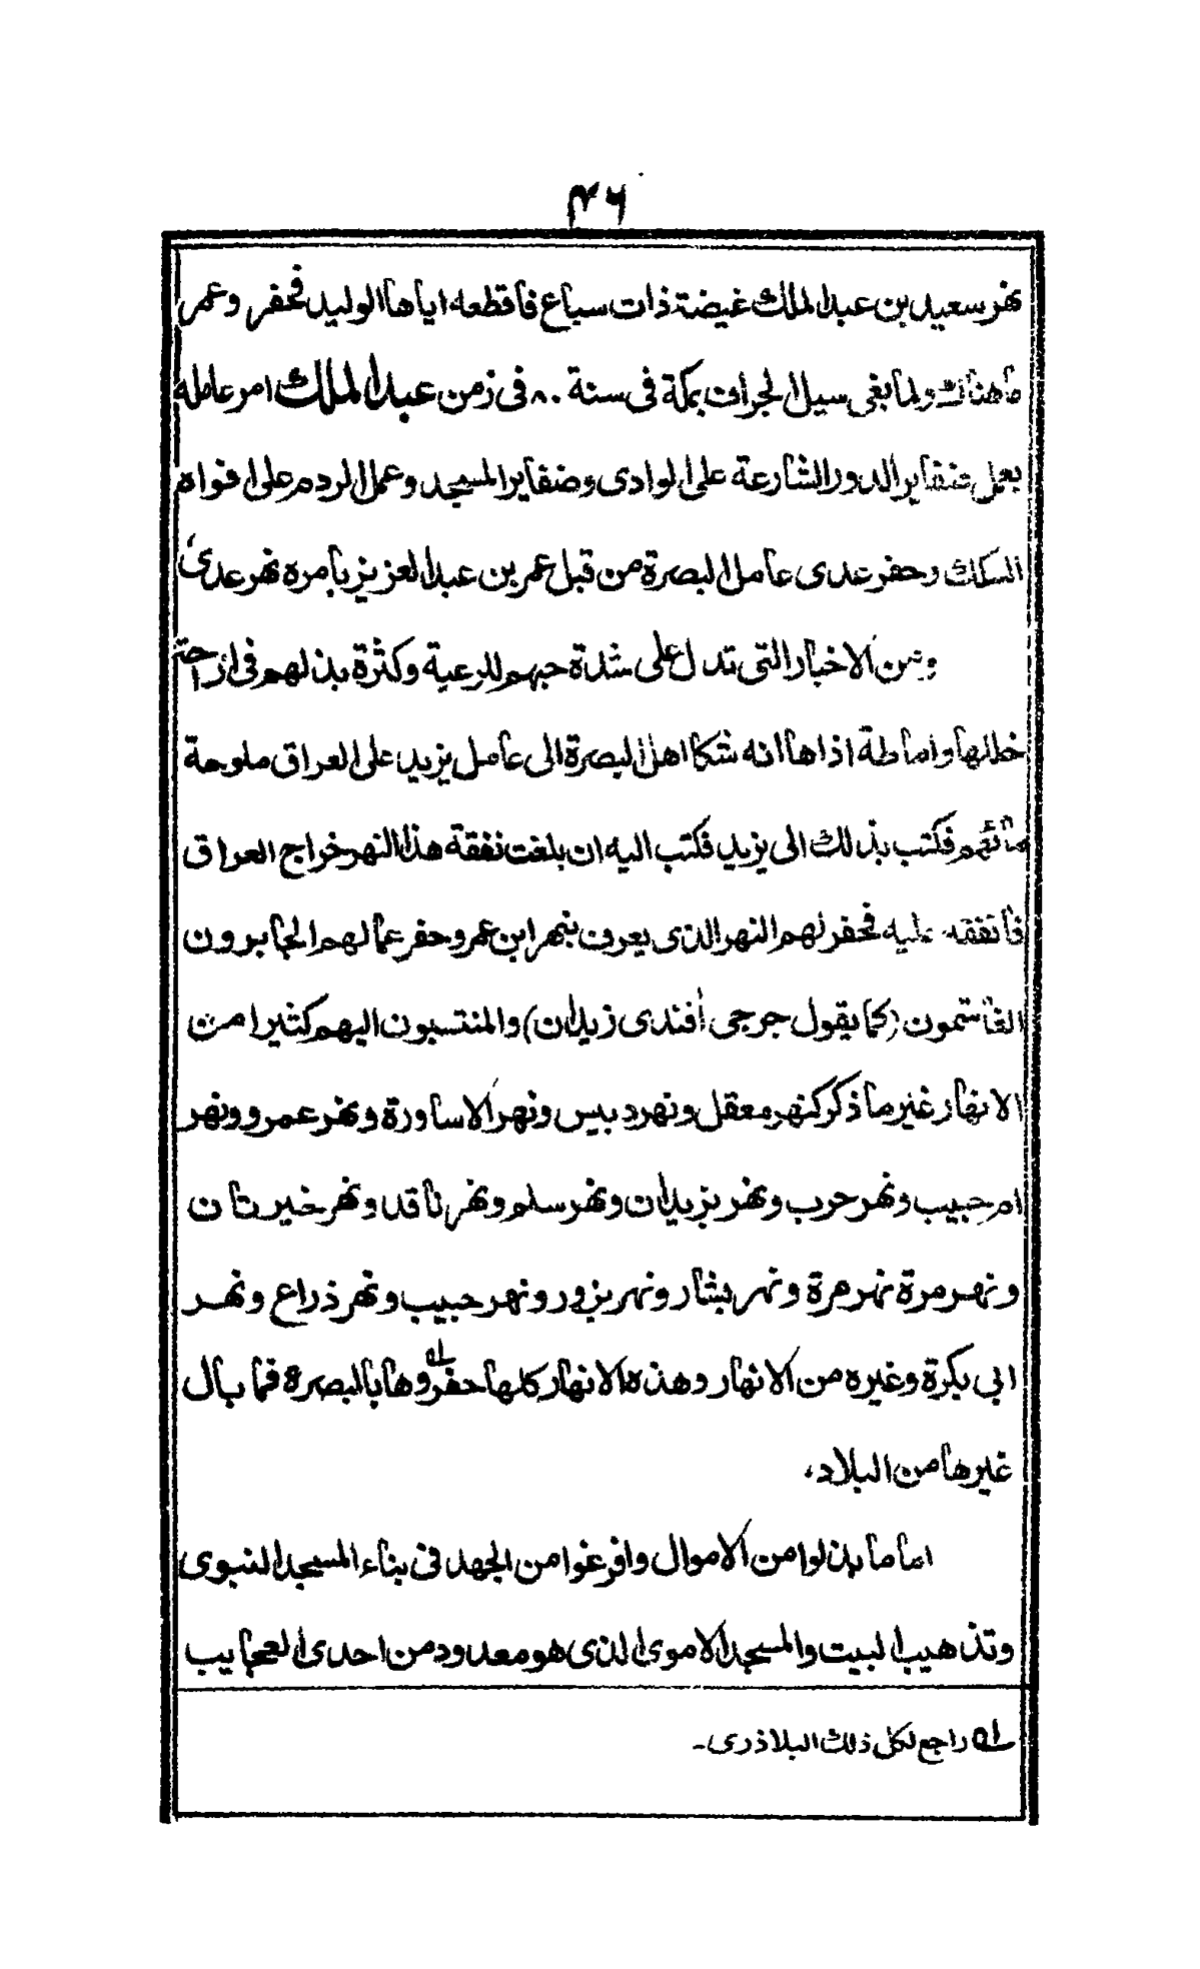 ۴۶
نهر سعيد بن عبد الملك غيضة ذات سباع فاقطعه اياها الوليد فحفر وعمر
ما هناك ولما بغى سيل الجراف بمكة فى سنة ٨٠ فى زمن عبد الملك امر عامله
بعمل ضفاير الدور الشارعة على الوادى وضفاير المسجد وعمل الردم على افواه
السكك وحفر عدى عامل البصرة من قبل عمر بن عبد العزيز بامره نهر عدى
ومن الاخبار التى تدل على شدة حبهم للرعية وكثرة بذلهم فى ازاحة
خللها واماطة اذاها انه شكا اهل البصرة الى عامل يزيد على العراق ملوحة
مائهم فكتب بذلك الى يزيد فكتب اليه ان بلغت نفقة هذا النهر خراج العراق
فانفقه عليه فحفر لهم النهر الذى يعرف بنهر ابن عمر وحفر عمالهم الجابرون
الغاشمون (كما يقول جرجى أفندى زيدان) والمنتسبون اليهم كثيرا من
الانهار غير ما ذكر كنهر معقل ونهر دبيس ونهر الاساورة ونهر عمرو ونهر
ام حبيب ونهر حرب ونهر يزيدان ونهر سلم ونهر نافذ ونهر خيرتان
ونهر مرة نهر مرة ونهر بشار ونهر يزور ونهر حبيب ونهر ذراع ونهر
ابى بكرة وغيره من الانهار وهذه الانهار كلها حفروها بالبصرة فما بال
غيرها من البلاد،
اما ما بذلوا من الاموال وافرغوا من الجهد فى بناء المسجد النبوى
وتذهيب البيت والمسجد الاموى الذى هو معدود من احدى العجايب
له راجع لكل ذلك البلاذرى۔